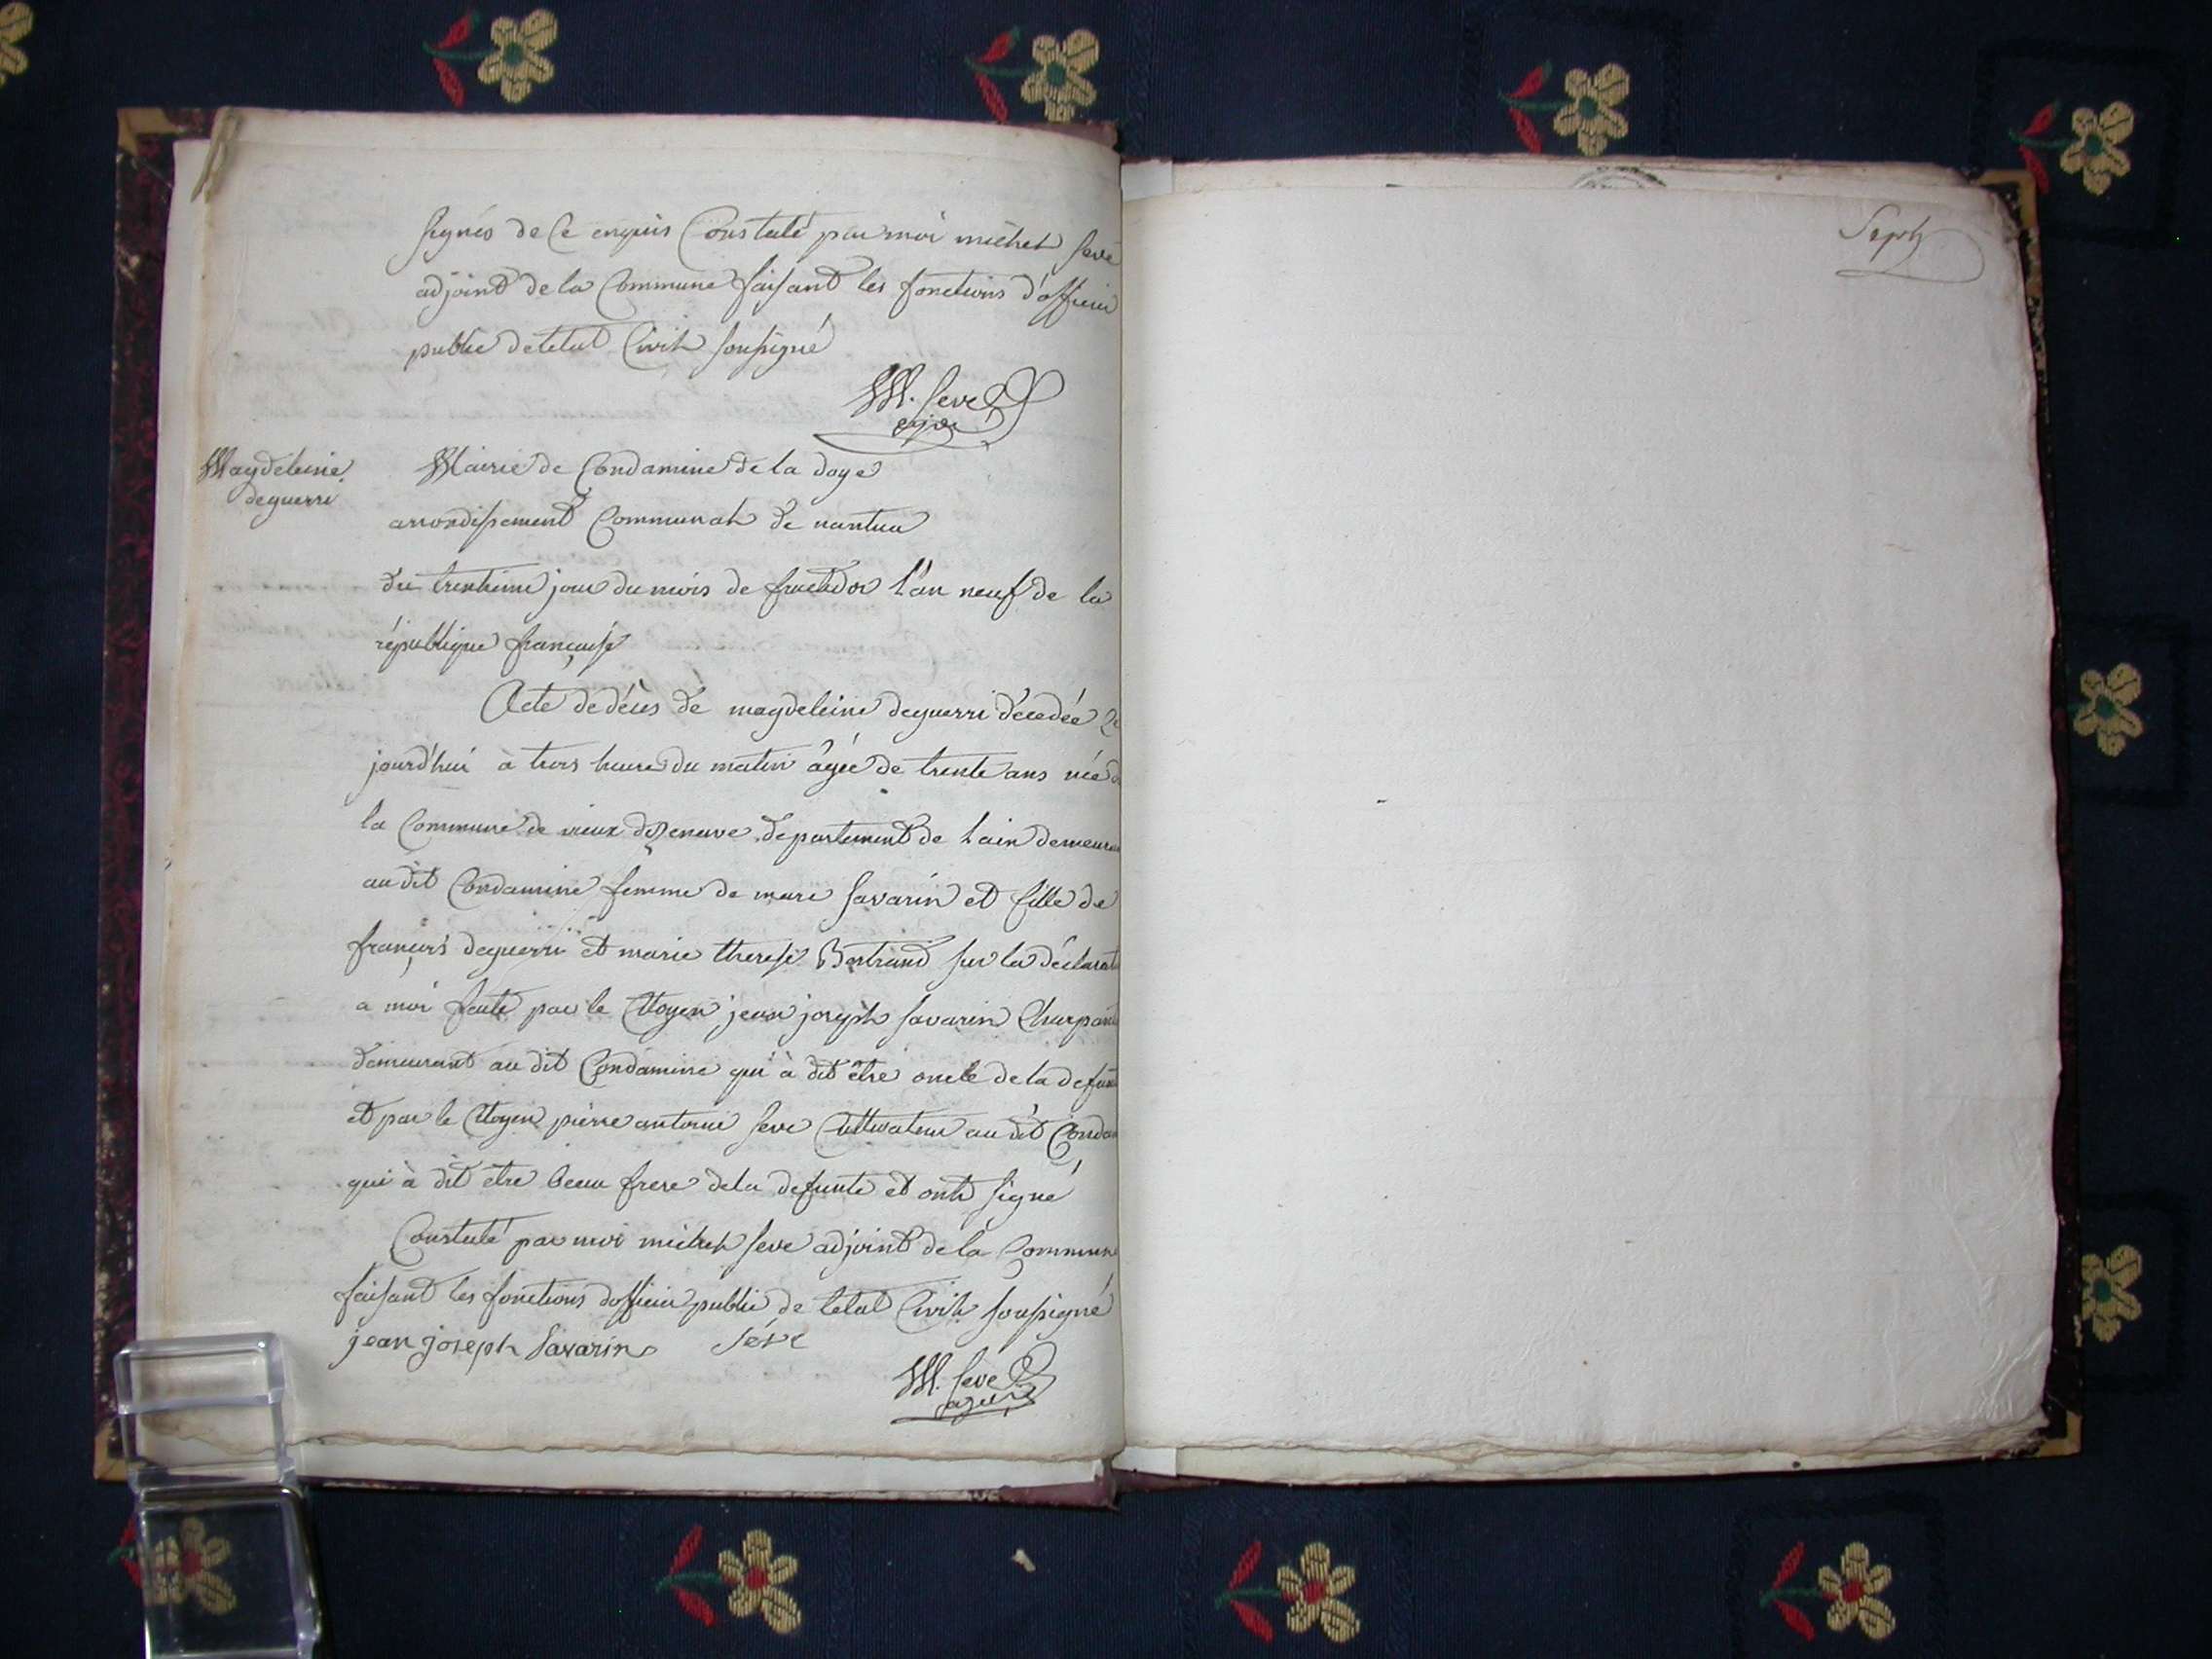 signés de ce enquis Constaté par moi michel seve
adjoint de la Commune faisant les fonctions d'officier
public de l'etat Civil soussigné
M. Seve
Magdeleine
deguerri
Mairie de Condamine de la doye
arrondissement Communal de nantua
du trentieme jour du mois de fructidor l'an neuf de la
république française
Acte de décés de magdeleine deguerri décedée ce
jourd'hui à trois heure du matin âgée de trente ans née d
la Commune de vieux departement de lain demeuran
au dit Condamine femme de marc savarin et fille de
françois deguerri et marie therese Bertrand sur la déclarat
a moi faite par le Citoyen jean joseph savarin Charpant
demeurant au dit Condamine qui à dit être oncle de la defunt
et par le Citoyen pierre antoine seve Cultivateur au dit Condam
qui à dit etre beau frere de la defunte et ont signé
Constaté par moi michel seve adjoint de la Commune
faisant les fonctions d'officier public de letat Civil soussigné
jean joseph Savarin Séve
M. Seve
Sept